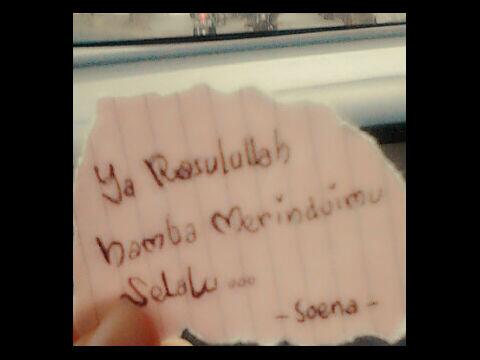 Ya Rasulullah
hamba Merinduimu
Selalu...
- Soena -